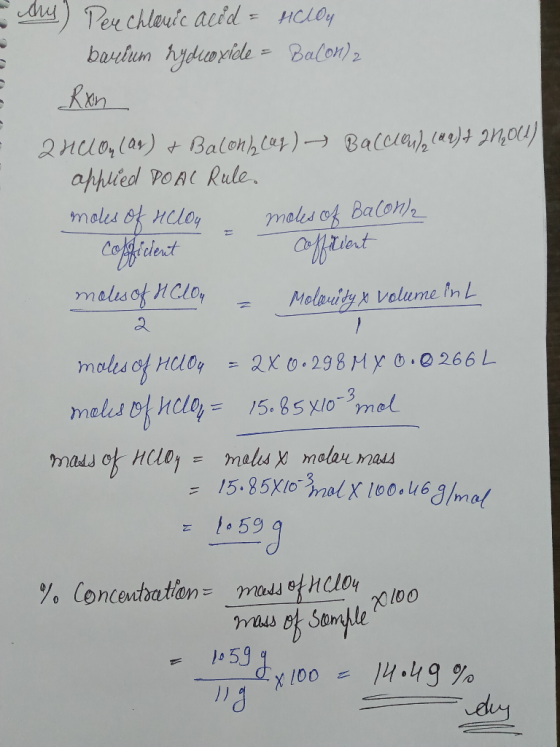 Ans) Perchloric acid = HClO4
barium hydroxide = Ba(OH)2
Rxn
2HClO4(aq) + Ba(OH)2(aq) → Ba(ClO4)2(aq) + 2H2O(l)
applied POAC Rule.
moles of HClO4 / Cofficient = moles of Ba(OH)2 / Cofficient
moles of HClO4 / 2 = Molarity x volume in L / 1
moles of HClO4 = 2 X 0.298 M X 0.0266 L
moles of HClO4 = 15.85X10^-3 mol
mass of HClO4 = moles x molar mass
= 15.85X10^-3 mol X 100.46 g/mol
= 1.59 g
% Concentration = mass of HClO4 / mass of Sample X100
= 1.59 g / 11 g X 100 = 14.49 %
Ans